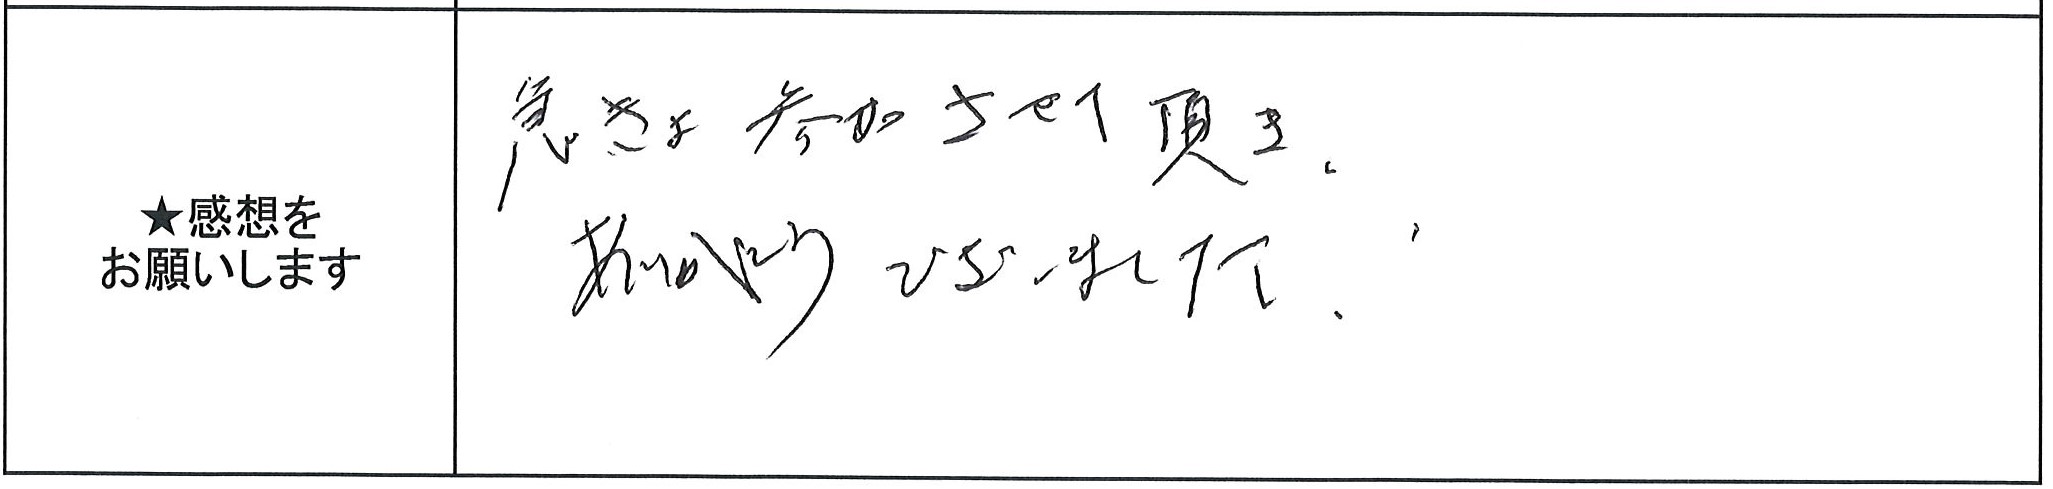 ★感想を
お願いします
急きょ参加させて頂き、
ありがとうございました。